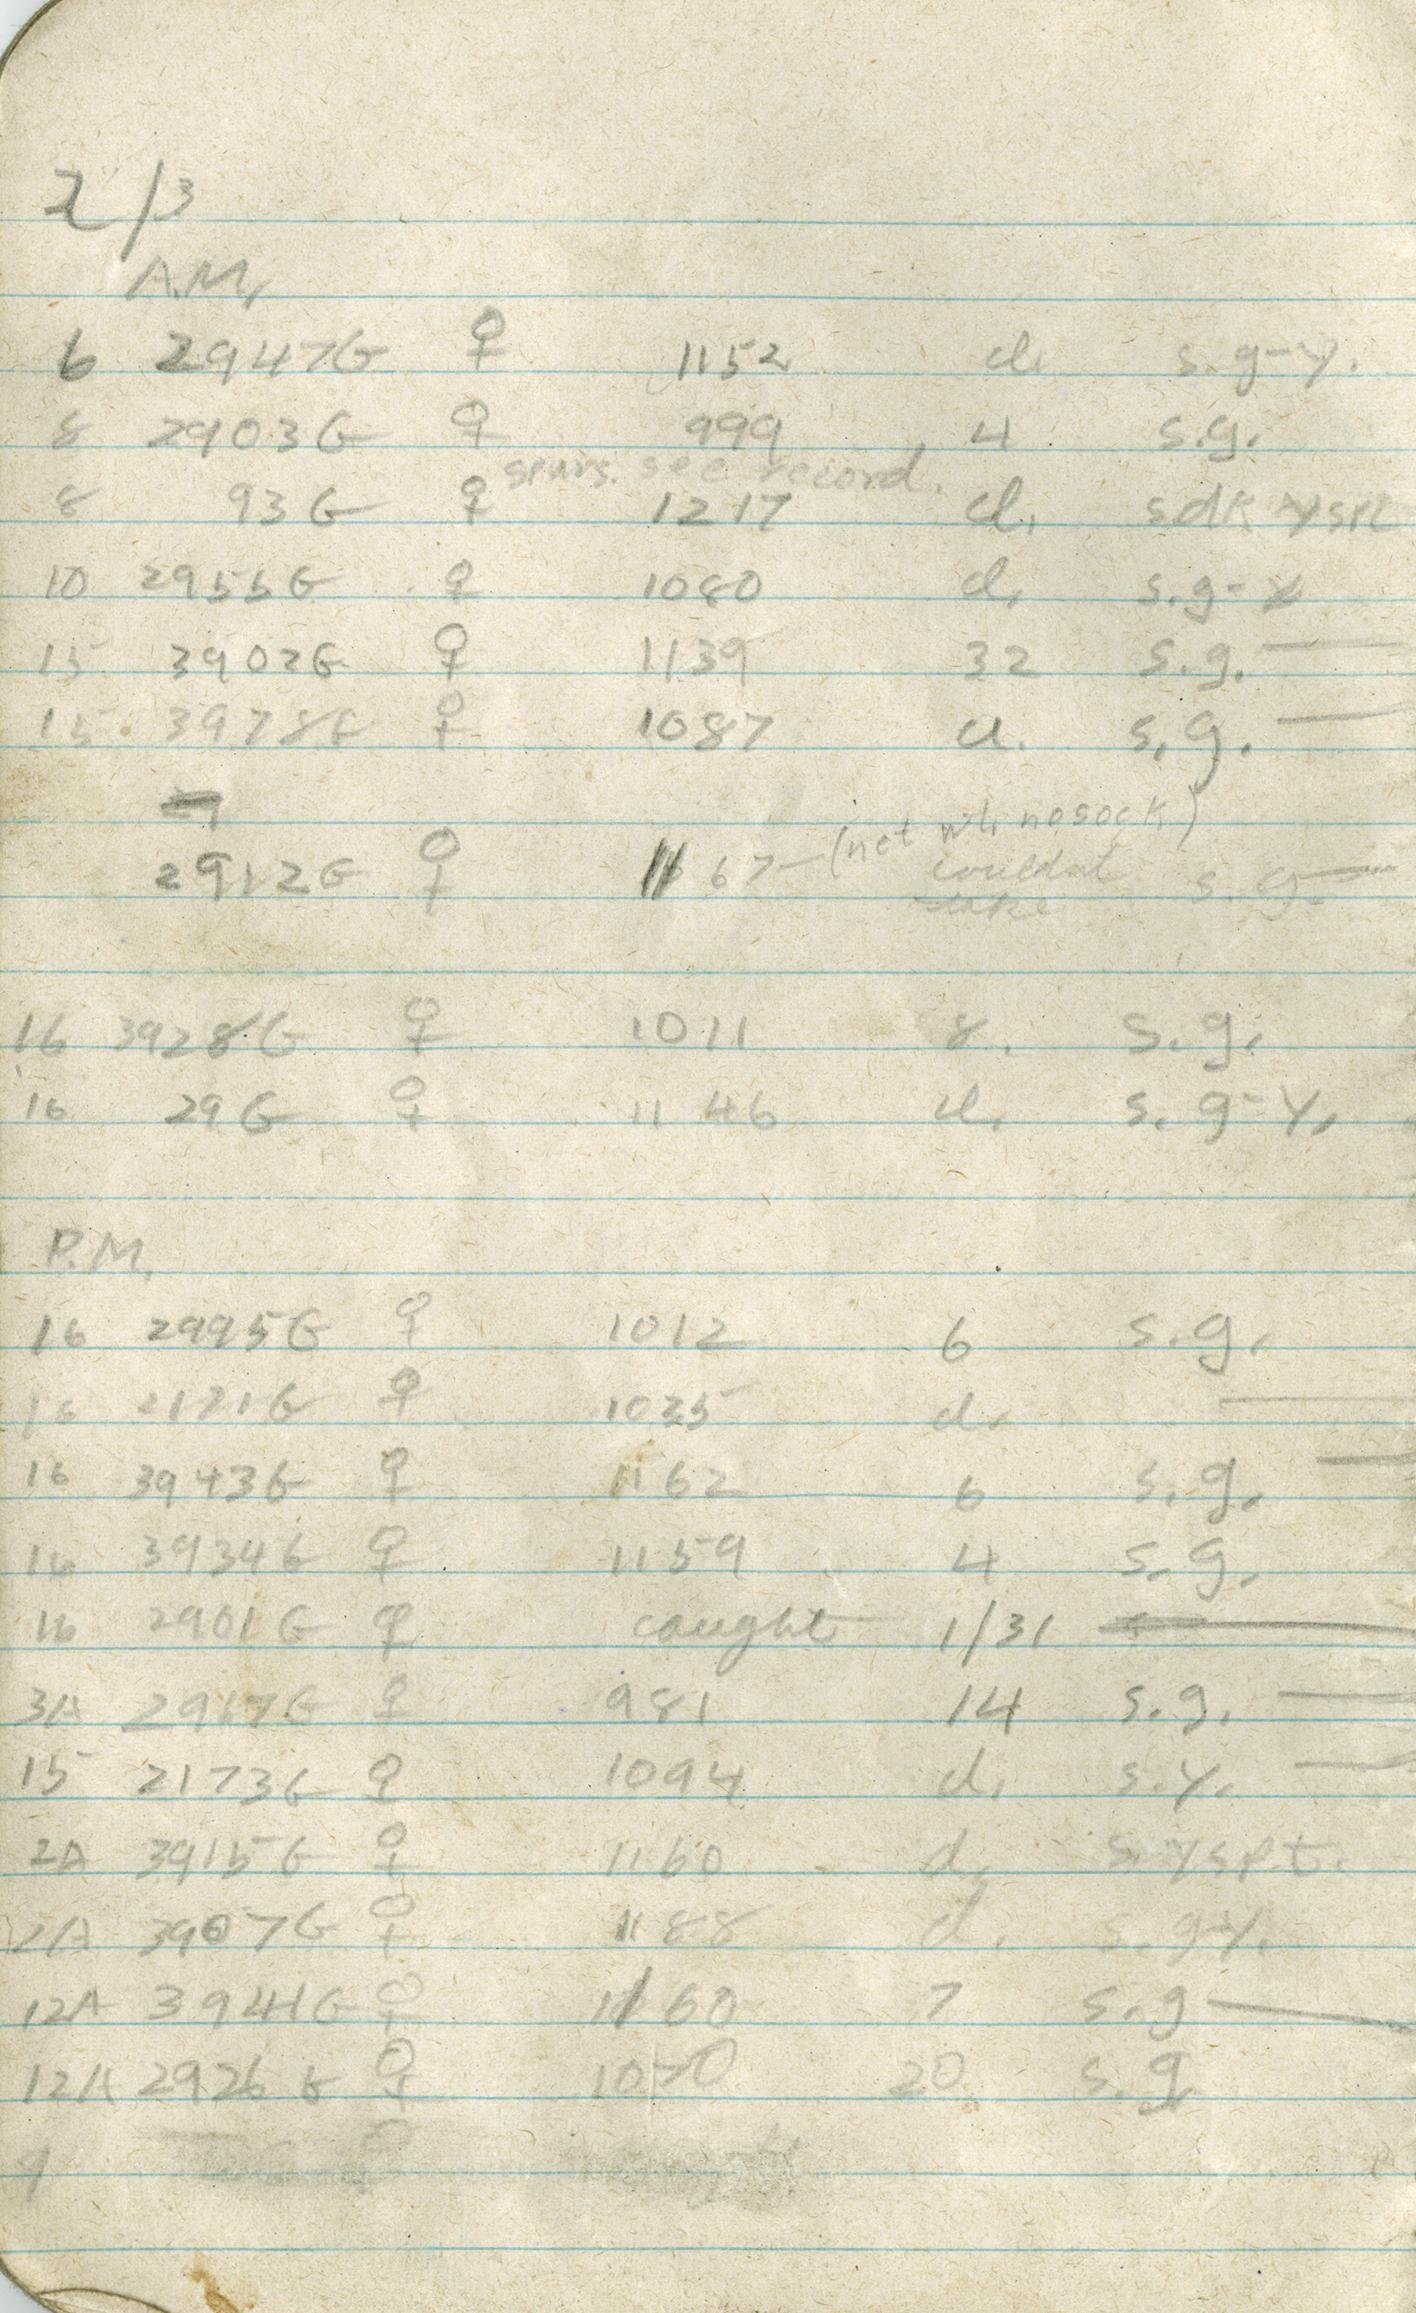 2/3
A.M.
6 2947G ♀ 1152 cl. s.g-y.
8 2903G ♀ 999 4 s.g.
spurs. see record.
8 93G ♀ 1217 cl. s.dk
10 2955G ♀ 1080 d. s.g-y
15 3902G ♀ 1139 32 s.g. —
15. ♀ 1087 s.g. —
(net wt. no sock)
2912G ♀ 1167 — couldn't s.g. —
take
16 3928G ♀ 1011 8. s.g.
16 29G ♀ 1146 cl. s.g-y.
P.M.
16 2995G ♀ 1012 6 s.g.
♀ 1035 d. —
16 3943G ♀ 1162 6 s.g. —
16 3934G ♀ 1159 4 s.g.
16 2901G ♀ caught 1/31 —
3A 2967G ♀ 981 14 s.g. —
15 2173G ♀ 1094 d. s.y. —
2A 3915G ♀ 1160 d. s. y spt.
3907G ♀ 1188 d. s.g-y.
12A 3941G ♀ 1160 7 s.g —
12A 2926G ♀ 1070 20 s.g.
9